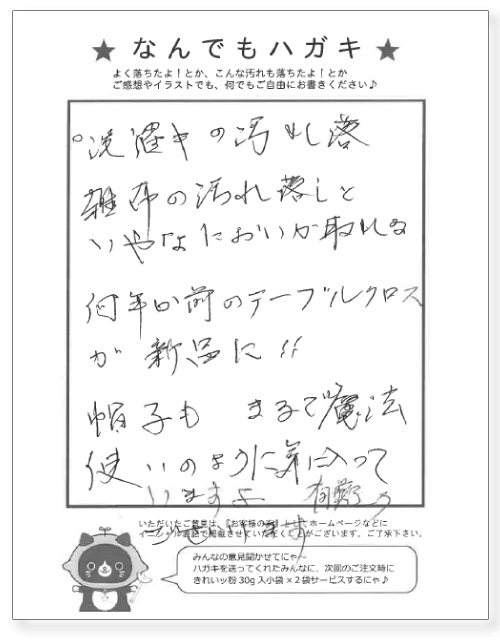 ★なんでもハガキ★
よく落ちたよ！とか、こんな汚れも落ちたよ！とか
ご感想やイラストでも、何でもご自由にお書きください♪
○洗濯キの汚れ落
雑布の汚れ落しと
いやなにおいが取れる
何年か前のテーブルクロス
が新品に!!
帽子も まるで魔法
使いのように気に入って
いますよ
いただいたご意見は、『お客様の声』としてホームページなどに
イニシャル表記で掲載させていただくことがございます。ご了承下さい。
みんなの意見聞かせてにゃ～
ハガキを送ってくれたみんなに、次回のご注文時に
きれいッ粉 30g 入小袋 ×２袋サービスするにゃ♪